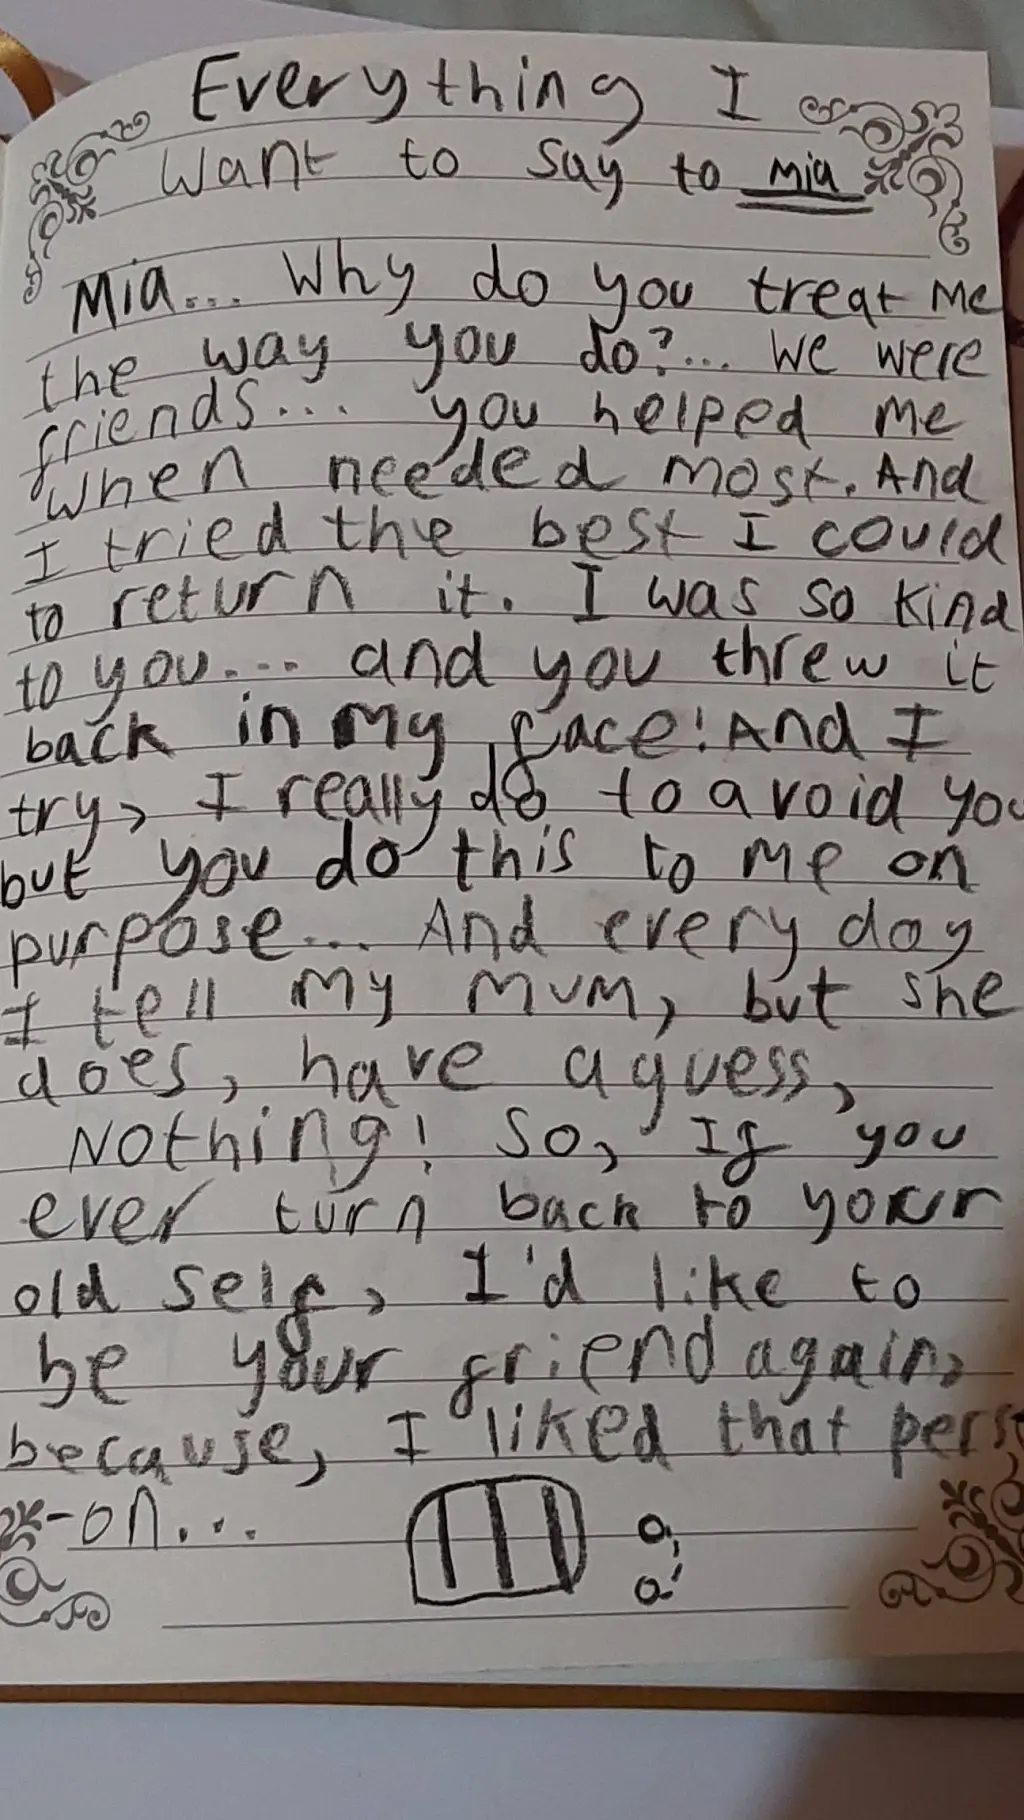 Everything I
want to say to Mia
Mia... Why do you treat me
the way you do?... We were
friends... you helped me
when needed most. And
I tried the best I could
to return it. I was so kind
to you... and you threw it
back in my face! And I
try, I really do to avoid you
but you do this to me on
purpose... And every day
I tell my mum, but she
does, have a guess,
Nothing! So, If you
ever turn back to your
old self, I'd like to
be your friend again,
because, I liked that pers
-on...